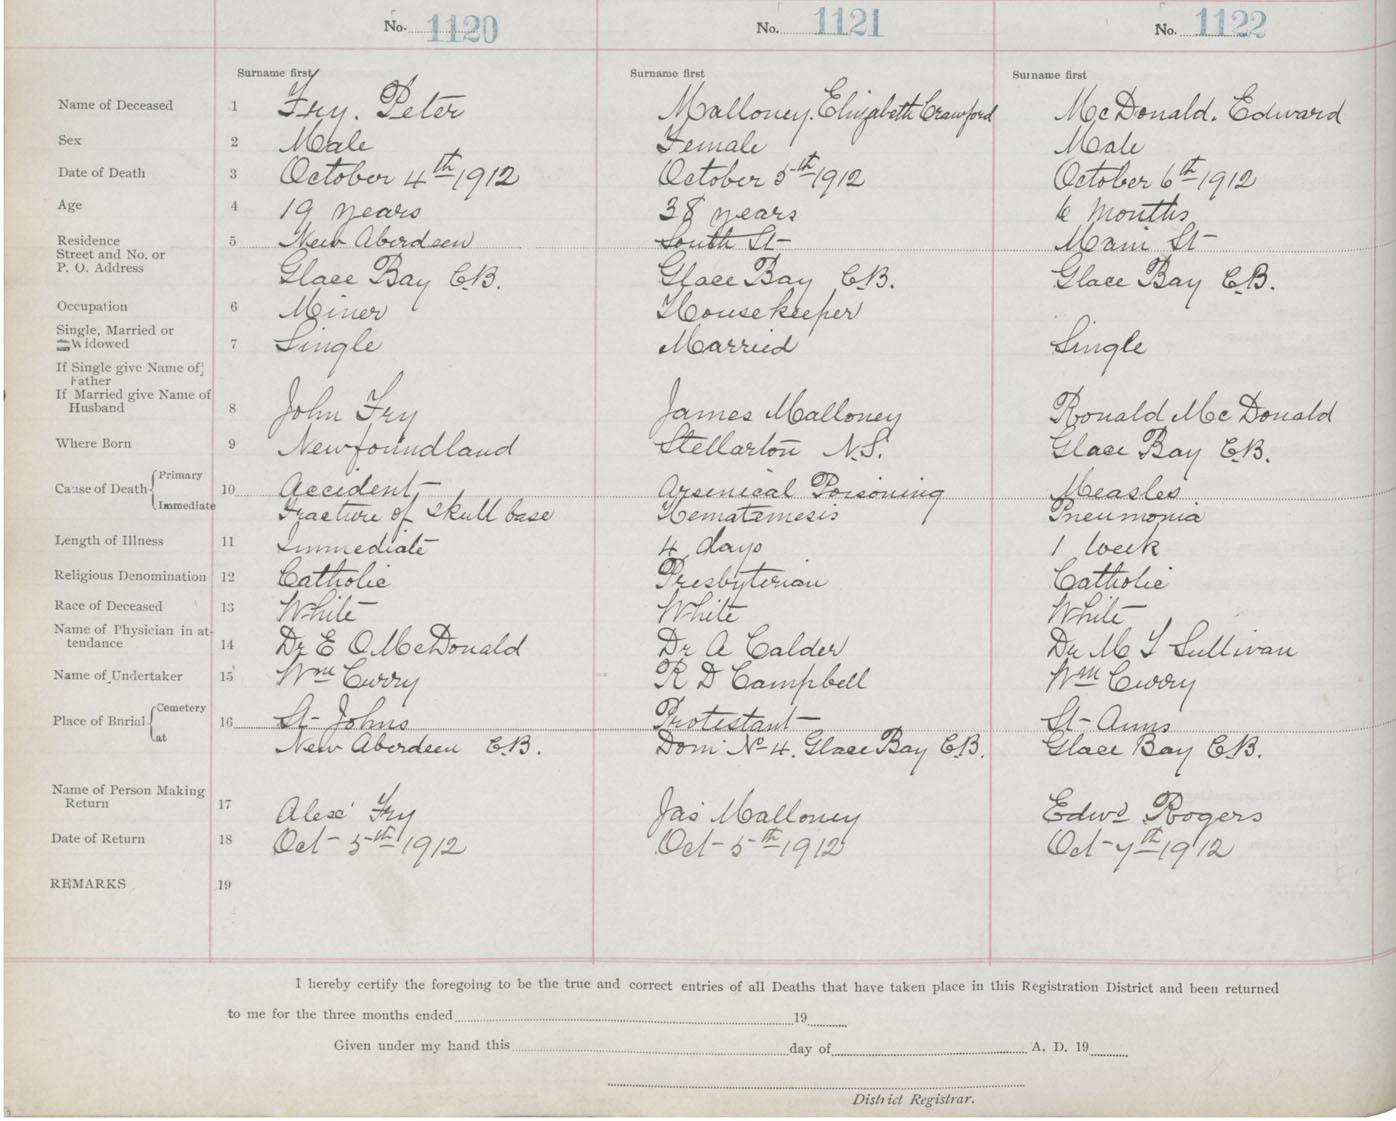 No. 1120 No. 1121 No. 1122
Surname first Surname first Surname first
Name of Deceased 1 Fry. Peter Malloney. Elizabeth Crawford McDonald. Edward
Sex 2 Male Female Male
Date of Death 3 October 4th 1912 October 5th 1912 October 6th 1912
Age 4 19 years 38 years 6 months
Residence 5 New Aberdeen South St Main St
Street and No. or
P. O. Address Glace Bay C.B. Glace Bay C.B. Glace Bay C.B.
Occupation 6 Miner Housekeeper
Single, Married or
Widowed 7 Single Married Single
If Single give Name of
Father
If Married give Name of
Husband 8 John Fry James Malloney Ronald McDonald
Where Born 9 Newfoundland Stellarton N.S. Glace Bay C.B.
Cause of Death Primary 10 Accident Arsenical Poisoning Measles
Immediate Fracture of skull base Hematemesis Pneumonia
Length of Illness 11 Immediate 4 days 1 week
Religious Denomination 12 Catholic Presbyterian Catholic
Race of Deceased 13 White White White
Name of Physician in at-
tendance 14 Dr E O McDonald Dr A Calder Dr M T Sullivan
Name of Undertaker 15 Wm Curry R D Campbell Wm Curry
Place of Burial Cemetery 16 St Johns Protestant St Anns
at New Aberdeen C.B. Dom No 4. Glace Bay C.B. Glace Bay C.B.
Name of Person Making
Return 17 Alex Fry Jas Malloney Edwd Rogers
Date of Return 18 Oct 5th 1912 Oct 5th 1912 Oct 7th 1912
REMARKS 19
I hereby certify the foregoing to be the true and correct entries of all Deaths that have taken place in this Registration District and been returned
to me for the three months ended 19
Given under my hand this day of A. D. 19
District Registrar.